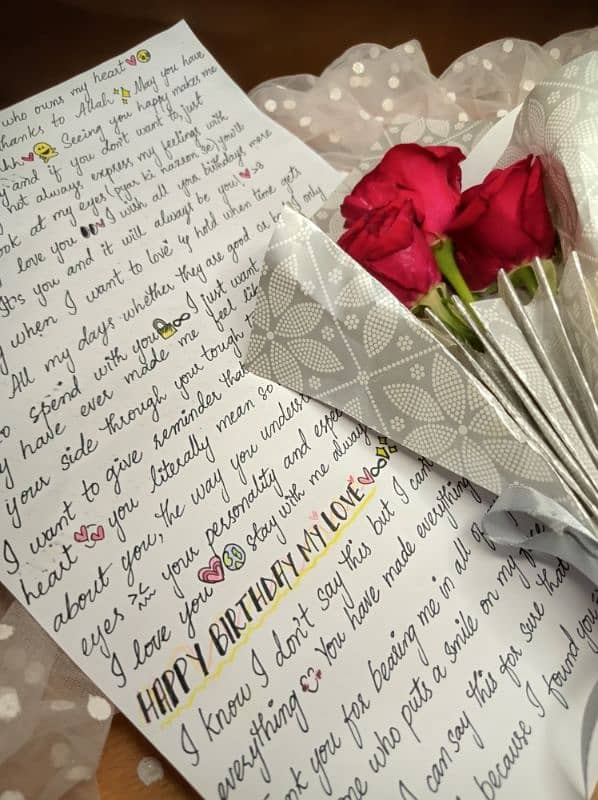 who owns my heart
thanks to Allah May you have
Seeing you happy makes me
and if you don't want to just
not always express my feelings with
look at my eyes (pyar ki nazron se) you'll
love you I wish all your birthdays more
It's you and it will always be you! <3
when I want to love & hold when time gets
All my days whether they are good or bad I only
to spend with you I just want
have ever made me feel
your side through your tough
I want to give reminder that
heart you literally mean so
about you, the way you underst
eyes your personality and espe
I love you stay with me always
HAPPY BIRTHDAY MY LOVE
I know I don't say this but I can't
everything You have made everything
you for bearing me in all
me who puts a smile on my
I can say this for sure that
because I found you